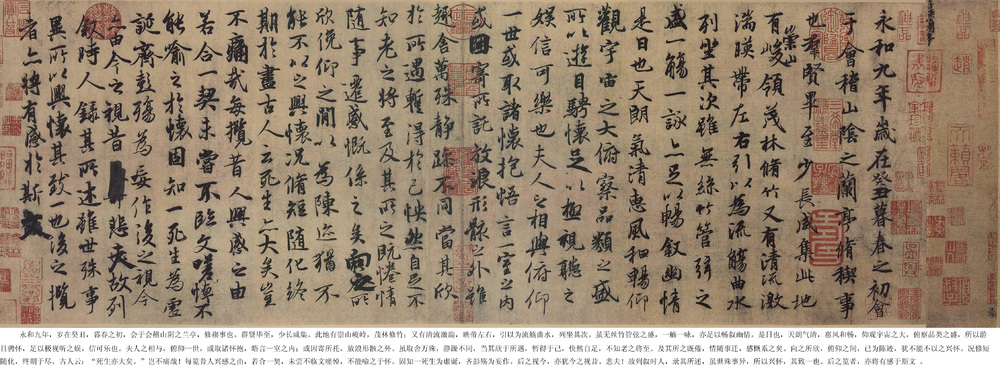 永和九年歲在癸丑暮春之初會
于會稽山陰之蘭亭脩稧事
也羣賢畢至少長咸集此地
有崇山峻領茂林脩竹又有清流激
湍暎帶左右引以為流觴曲水
列坐其次雖無絲竹管弦之
盛一觴一詠亦足以暢叙幽情
是日也天朗氣清惠風和暢仰
觀宇宙之大俯察品類之盛
所以遊目騁懷足以極視聽之
娛信可樂也夫人之相與俯仰
一世或取諸懷抱悟言一室之內
或因寄所託放浪形骸之外雖
趣舍萬殊靜躁不同當其欣
於所遇暫得於己怏然自足不
知老之將至及其所之既惓情
隨事遷感慨係之矣向之所
欣俛仰之間以為陳迹猶不
能不以之興懷況脩短隨化終
期於盡古人云死生亦大矣豈
不痛哉每攬昔人興感之由
若合一契未嘗不臨文嗟悼不
能喻之於懷固知一死生為虛
誕齊彭殤為妄作後之視今
亦由今之視昔悲夫故列
叙時人錄其所述雖世殊事
異所以興懷其致一也後之攬
者亦將有感於斯文
永和九年，岁在癸丑，暮春之初，会于会稽山阴之兰亭，修禊事也。群贤毕至，少长咸集。此地有崇山峻岭，茂林修竹；又有清流激湍，映带左右，引以为流觞曲水，列坐其次。虽无丝竹管弦之盛，一觞一咏，亦足以畅叙幽情。是日也，天朗气清，惠风和畅，仰观宇宙之大，俯察品类之盛，所以游
目骋怀，足以极视听之娱，信可乐也。夫人之相与，俯仰一世，或取诸怀抱，晤言一室之内；或因寄所托，放浪形骸之外。虽取舍万殊，静躁不同，当其欣于所遇，暂得于己，快然自足，不知老之将至。及其所之既倦，情随事迁，感慨系之矣。向之所欣，俯仰之间，已为陈迹，犹不能不以之兴怀。况修短
随化，终期于尽。古人云：“死生亦大矣。”岂不痛哉！每览昔人兴感之由，若合一契，未尝不临文嗟悼，不能喻之于怀。固知一死生为虚诞，齐彭殇为妄作。后之视今，亦犹今之视昔。悲夫！故列叙时人，录其所述，虽世殊事异，所以兴怀，其致一也。后之览者，亦将有感于斯文。